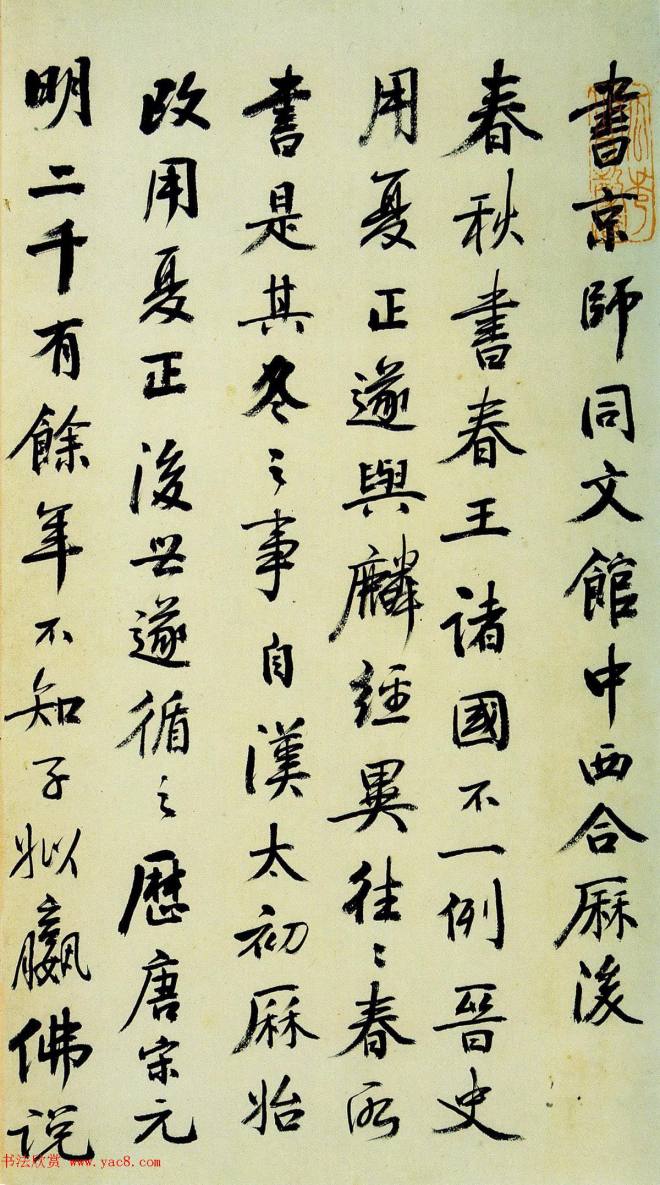 書京師同文館中西合厤後
春秋書春王諸國不一例晉史
用夏正遂與麟經異往〻春所
書是其冬之事自漢太初厤始
改用夏正後世遂循之歷唐宋元
明二千有餘年不知子姒嬴佛說
书法欣赏 www.yac8.com